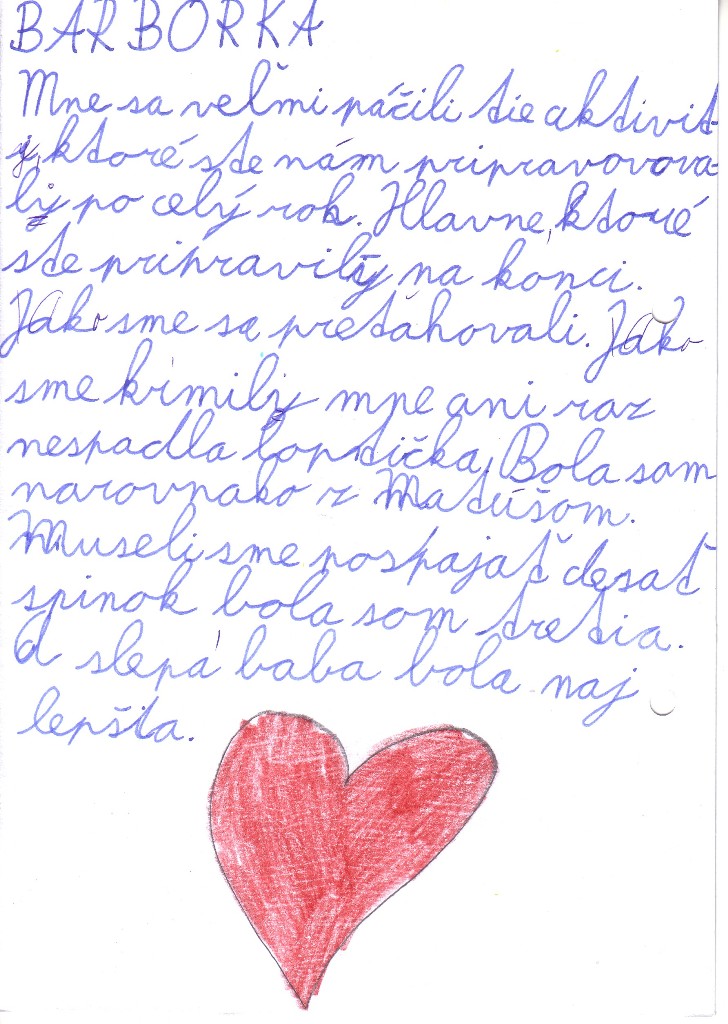 BARBORKA
Mne sa veľmi páčili tie aktivit-
y, ktoré ste nám pripravovova
li po celý rok. Hlavne, ktoré
ste pripravili na konci.
Jako sme sa preťahovali. Jako
sme kŕmili mne ani raz
nespadla loptička. Bola som
narovnako z Matúšom.
Museli sme pospájať desať
spinok bola som tretia.
A slepá baba bola naj
lepšia.